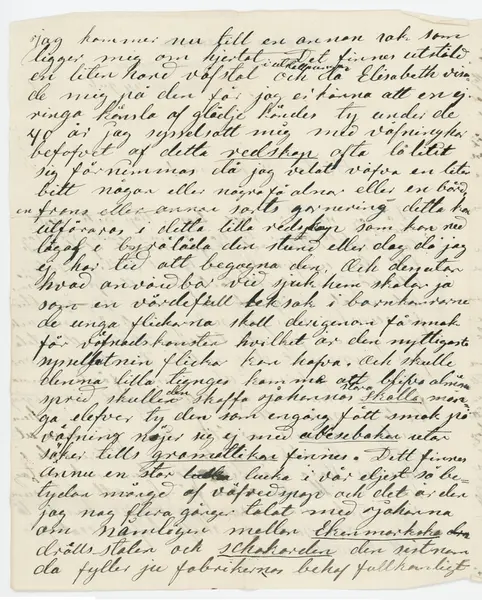 jag kommer nu till en annan sak som
ligger mig om hjertat. Det finnes utstäld
en liten hand väfstol i utställningen och då Elisabeth visa
de mig på den får jag erkänna att en ej
ringa känsla af glädje kändes ty under de
40 år jag sysselsatt mig med väfningkar
befofvet af detta redskap ofta låtit
sig förnimmas då jag velat väfva en liten
bitt någon eller några få alnar eller en bård
en frans eller annan sorts garnering detta kan
utföraras i detta lilla redskap som kan ned
läggas i byrålåda den stund eller dag då jag
ej har tid att begagna den. Och dessutan
hvad användbar vid sjuk hem skolar ja
som en värdefull leksak i barnkamrarne
de unga flickorna skall derigenom få smak
för väfnadskonsten hvilket är den nyttigaste
sysselsatnin flickor kan hafva. Och skulle
denna lilla tignges komma att blifva almän
spred skulle den skaffa Johannas stora skolla mån
ga elefver ty den som engång fått smak på
väfning nöjer sig ej med abeseboken utan
söker tills gramattikan finnes. Dett finnes
ännu en stor lucka i vår eljest så be-
tydan mängd af väfredskap och det är den
jag nog flera gånger talat med Johanna
om nämligen mellan Ekenmarkska dra
drällstolen och schakarden den sistnem
da fyller ju fabrikernas behof fullkomligt